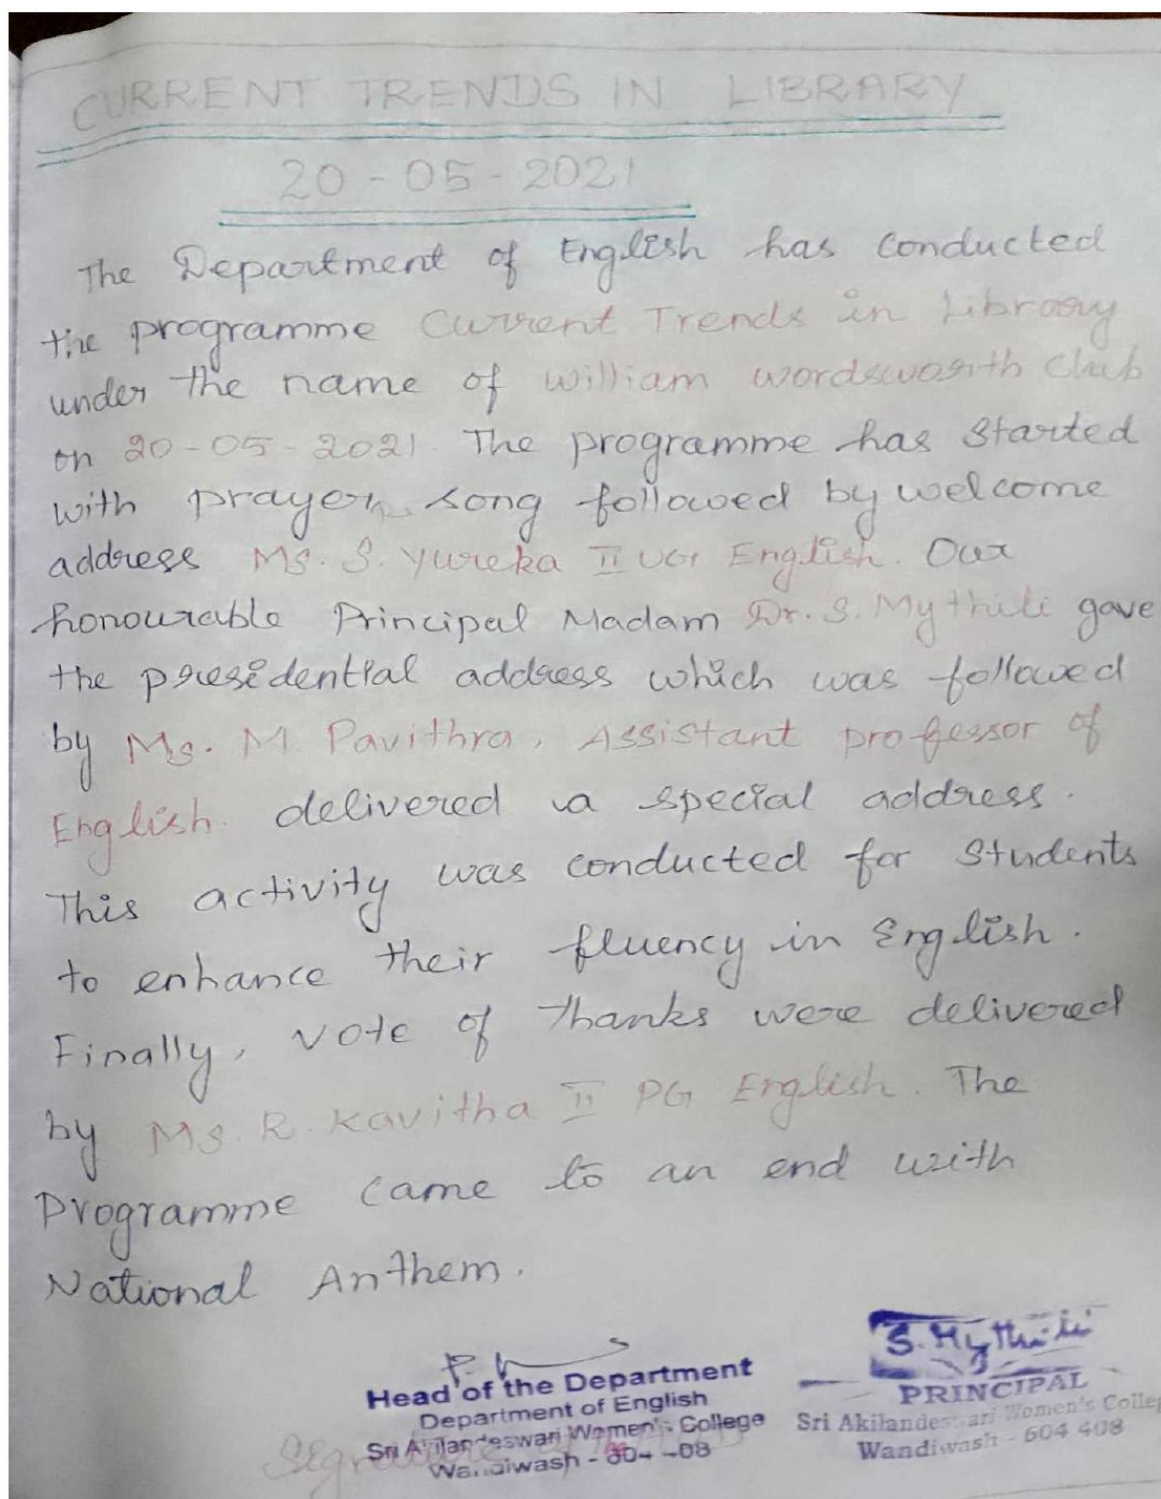 CURRENT TRENDS IN LIBRARY
20-05-2021
The Department of English has conducted
the programme Current Trends in Library
under the name of William Wordsworth Club
on 20-05-2021. The programme has started
with prayer song followed by welcome
address Ms. S. Yureka II UG English. Our
honourable Principal Madam Dr. S. Mythili gave
the presidential address which was followed
by Ms. M. Pavithra, Assistant professor of
English. delivered a special address.
This activity was conducted for students
to enhance their fluency in English.
Finally, vote of thanks were delivered
by Ms. R. Kavitha II PG English. The
Programme came to an end with
National Anthem.
S. Mythili
Head of the Department
PRINCIPAL
Department of English
Sri Akilandeswari Women's College
Sri Akilandeswari Women's Colleg
Wandiwash - 604 408
Wandiwash - 604 408